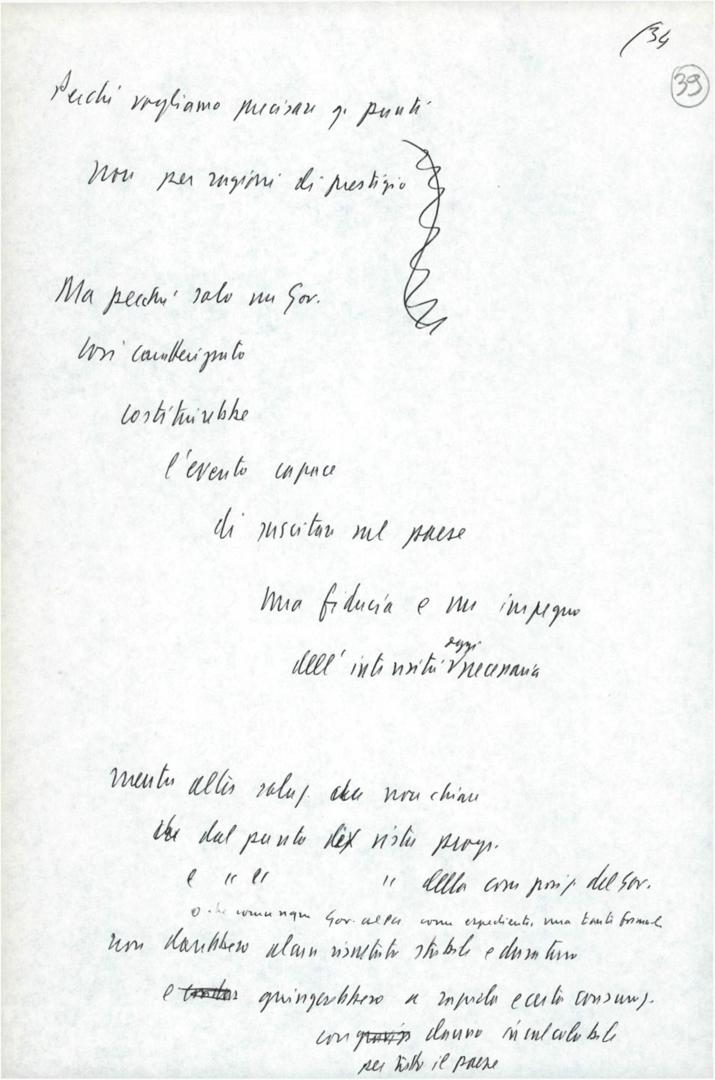 /34
39
Perché vogliamo precisare q. punti
non per ragioni di prestigio
Ma perché solo un Gov.
così caratterizzato
costituirebbe
l'evento capace
di suscitare nel paese
una fiducia e un impegno
oggi
dell'intensità necessaria
mentre altre soluz. non chiare
dal punto di vista progr.
e " " " della composiz. del Gov.
o che comunque Gov. come espediente, una
non darebbero alcun risultato stabile e duraturo
e giungerebbero a rapida e certa consunz.
con danno incalcolabile
per tutto il paese